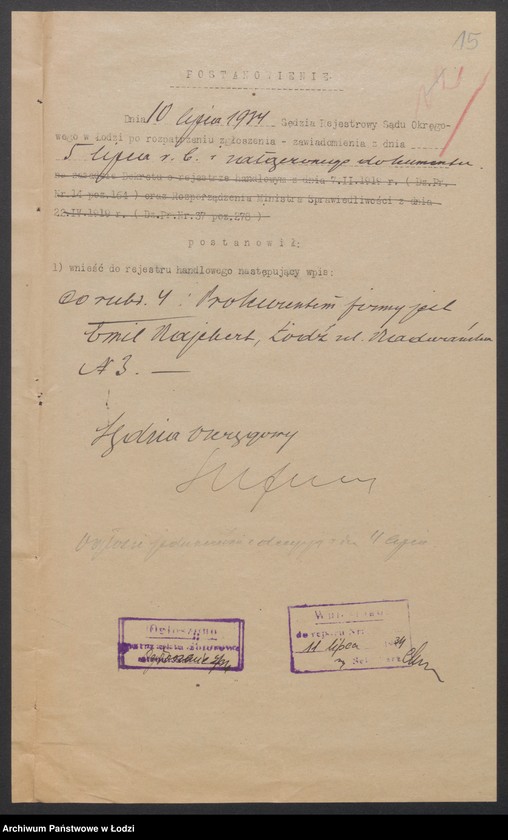 15
POSTANOWIENIE
Dnia 10 lipca 1924 Sędzia Rejestrowy Sądu Okręgo-
wego w Łodzi po rozpatrzeniu zgłoszenia - zawiadomienia z dnia
5 lipca r. b. i załączonego dokumentu
na zasadzie Dekretu o rejestrze handlowym z dnia 7.II.1919 r. ( Dz.Pr.
Nr.14 poz.164 ) oraz Rozporządzenia Ministra Sprawiedliwości z dnia
22.IV.1919 r. ( Dz.Pr.Nr.37 poz.278 )
postanowił:
1) wnieść do rejestru handlowego następujący wpis:
Do rubr. 4 : Prokurentem firmy jest
Emil Rajchert, Łódź ul. Nadwrańska
N 3. —
Sędzia Okręgowy
4 lipca
Ogłoszono
Wniesiono
do repert. Nr.
11 lipca 1924
Sekretarz
Archiwum Państwowe w Łodzi